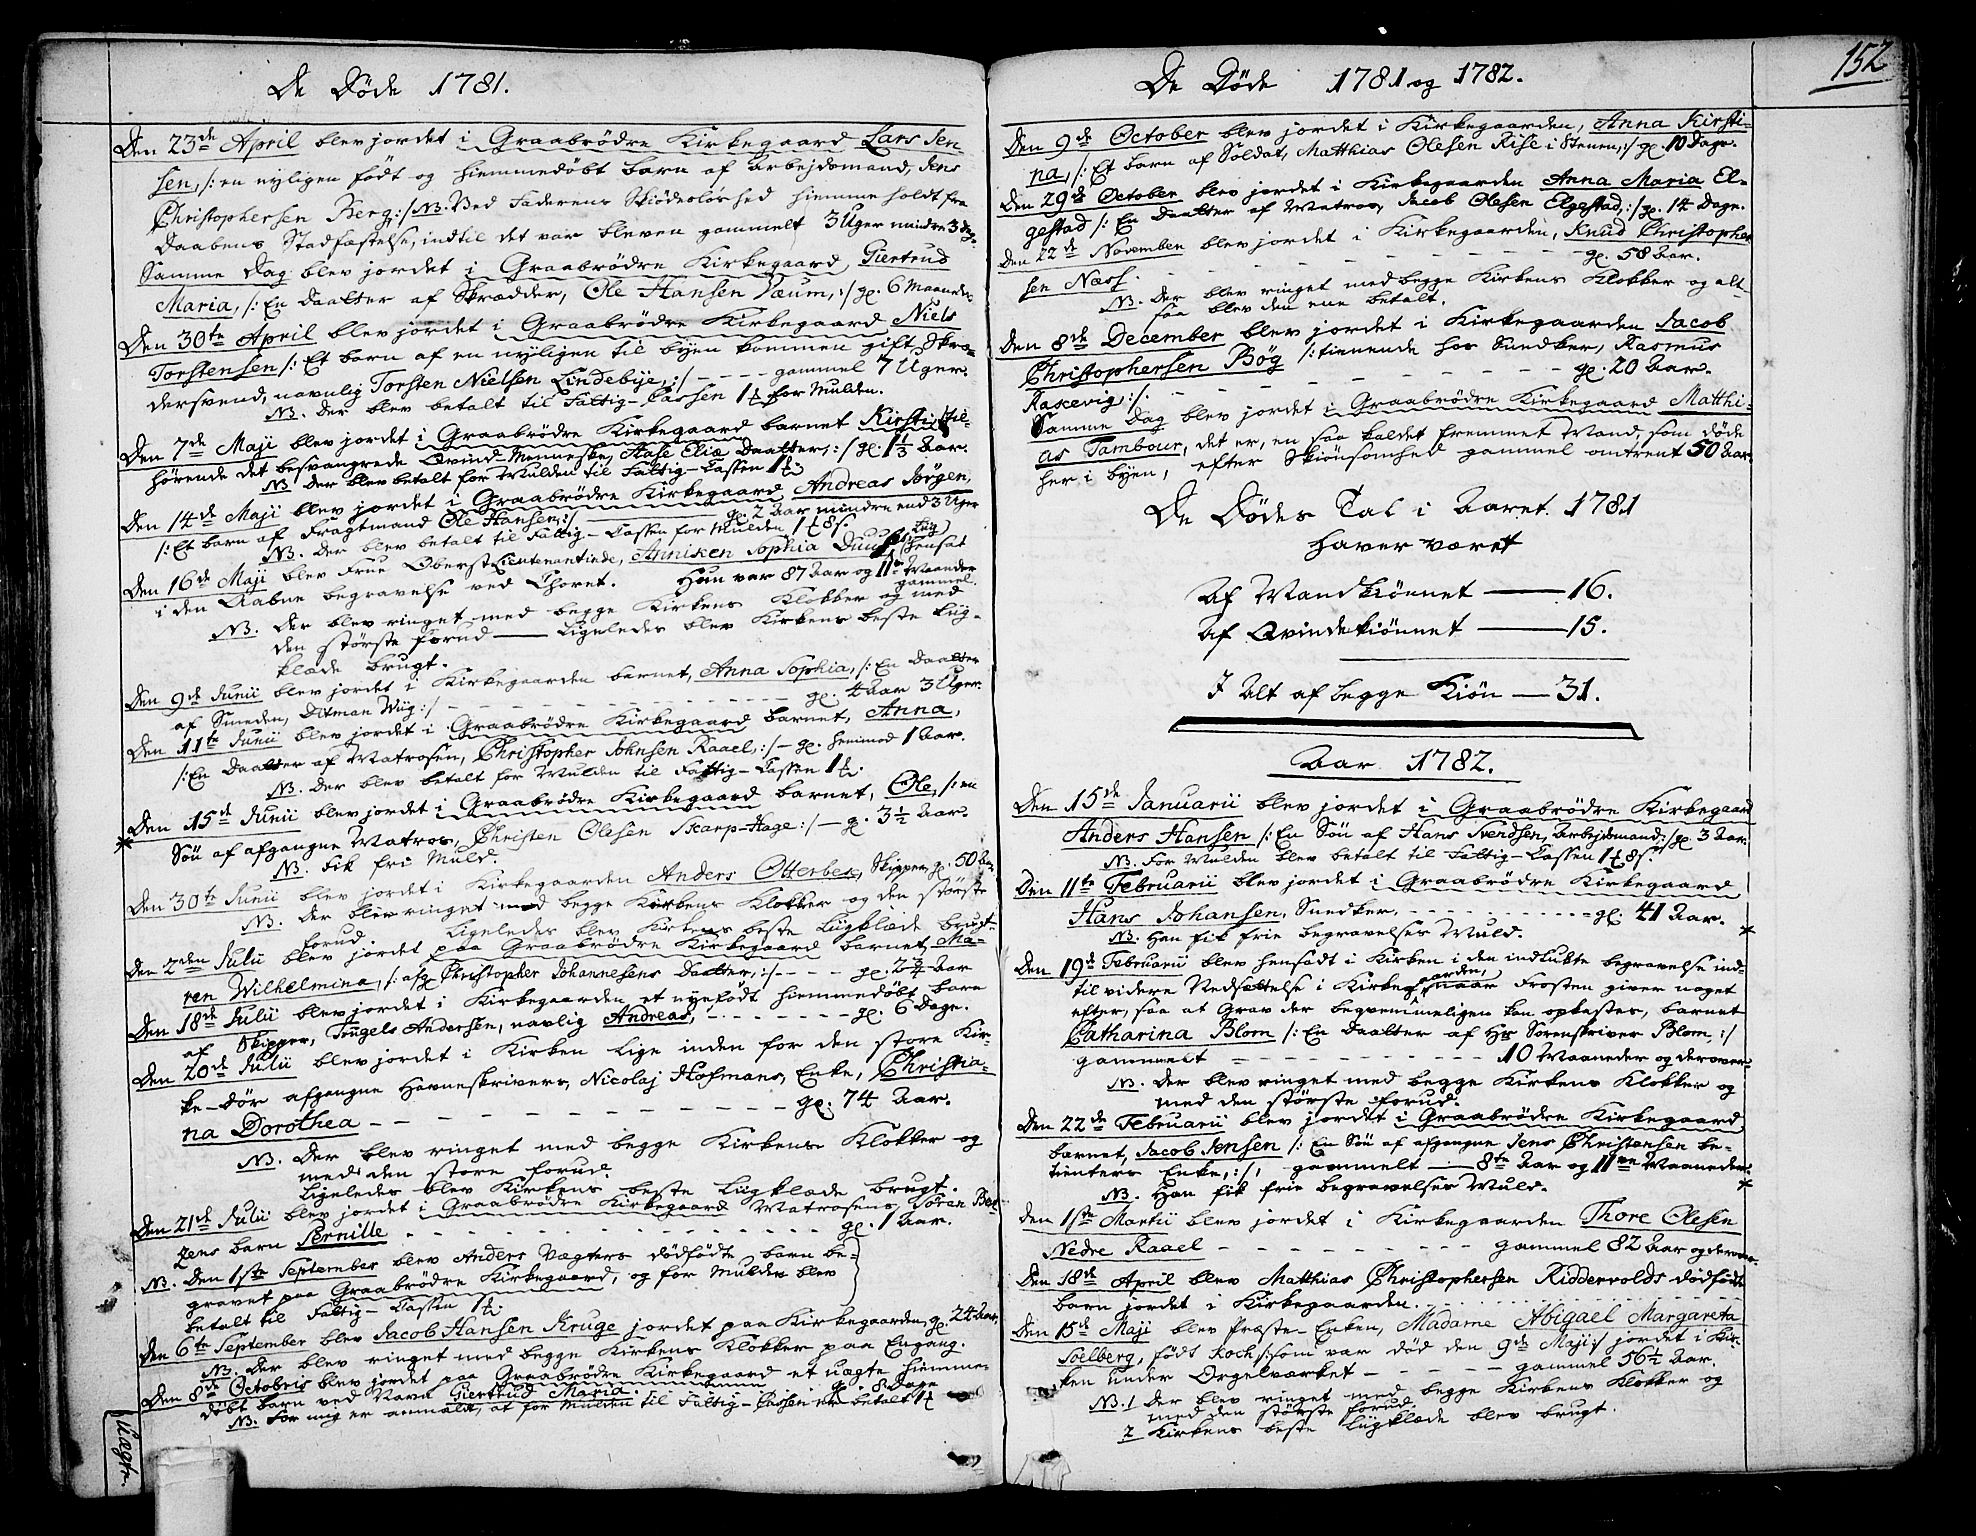 De Døde 1781.
Den 23de April blev jordet i Graabrødre Kirkegaard Lars Jen
sen, /: en nyligen født og hiemmedøbt barn af Arbejdsmand, Jens
Christophersen Berg :/ NB. Ved Faderens Skiødesløshed hiemme holdt fra
Daabens Stadfæstelse, indtil det var bleven gammelt 3 Uger mindre 3 dag.
Samme Dag blev jordet i Graabrødre Kirkegaard Giertrud
Maria, /: En Daatter af Skrædder, Ole Hansen Væum, :/ gl. 6 Maaneder
Den 30te April blev jordet i Graabrødre Kirkegaard Niels
Torstensen /: Et barn af en nyligen til byen kommen gift Skræ-
dersvend, navnlig Torsten Nielsen Lindebye, :/ - - - - gammel 7 Uger.
NB. Der blev betalt til Fattig-Cassen 1 ɫ for Mulden.
Den 7de Maji blev jordet i Graabrødre Kirkegaard barnet Kirsti, til-
hørende det besvangrede Qvind-Menneske, Aase Eliæ Daatter, :/ gl. 1 1/3 Aar.
NB. Der blev betalt for Mulden til Fattig-Cassen 1 ɫ
Den 14de Maji blev jordet i Graabrødre Kirkegaard Andreas Jørgen,
/: Et barn af Fragtmand Ole Hansen, :/ gl. 2 Aar mindre end 3 Uger
NB. Der blev betalt til Fattig-Cassen for Mulden 1 ɫ 8 s.
Den 16de Maji blev Frue Oberst Lieutenantinde, Anniken Sophia hensat
i den Aabne begravelse ved Choret. Hun var 87 Aar og 11 Maaneder
gammel.
NB. Der blev ringet med begge Kirkens Klokker og med
den største forud — Ligeledes blev Kirkens beste Liig-
klæde brugt.
Den 9de Junii blev jordet i Kirkegaarden barnet, Anna Sophia, /: En Daatter
af Smeden, Ditman Wiig :/ - - - - gl. 4 Aar 3 Uger.
Den 11te Junii blev jordet i Graabrødre Kirkegaard barnet, Anna,
/: En Daatter af Matrosen, Christopher Johnsen Raael, :/ - gl. henimod 1 Aar.
NB. Der blev betalt for Mulden til Fattig-Cassen 1 ɫ.
Den 15de Junii blev jordet i Graabrødre Kirkegaard barnet, Ole, /: en
* Søn af afgangne Matros, Christen Olesen Skarp-Hage :/ - g. 3 1/2 Aar.
NB. Fik fri Muld.
Den 30te Junii blev jordet i Kirkegaarden Anders Otterbek, Skipper gl. 50 Aar
NB. Der blev ringet med begge Kirkens Klokker og den største
forud Ligeledes blev Kirkens beste Liigklæde brugt.
Den 2den Julii blev jordet paa Graabrødre Kirkegaard barnet Ma-
ren Wilhelmina, /: afg. Christopher Johannesens Daatter, :/ - - - - gl. 2 3/4 Aar
Den 18de Julii blev jordet i Kirkegaarden et nyefødt hiemmedøbt barn
af Skipper, Trugels Andersen, navlig Andreas, - - - - gl. 6 Dage.
Den 20de Julii blev jordet i Kirken lige inden for den store Kir-
ke-Dør afgangne Havneskrivers, Nicolaj Hofmans, Enke, Christia-
na Dorothea - - - - gl. 74 Aar.
NB. Der blev ringet med begge Kirkens Klokker og
med den store forud.
Ligeledes blev Kirkens beste Liigklæde brugt.
Den 21de Julii blev jordet i Graabrødre Kirkegaard Matrosens, Søren Ber
gens barn Pernille - - - - gl. 1 Aar.
NB. Den 1ste September blev Anders Vægters dødfødte barn be-
gravet paa Graabrødre Kirkegaard, og for Mulden blev
betalt til Fattig-Cassen 1 ɫ.
Den 6te September blev Jacob Hansen Kruge jordet paa Kirkegaarden, gl. 24 Aar.
NB. Der blev ringet med begge Kirkens Klokker paa Engang.
Den 8de Octobris blev jordet paa Graabrødre Kirkegaard et uægte hiemme-
døbt barn ved Navn Giertrud Maria. gl. 8 Dage
NB. For mig er anmeldt, at for Mulden til Fattig-Cassen er betalt 1 ɫ
Uægte
De Døde 1781 og 1782.
152
Den 9de October blev jordet i Kirkegaarden, Anna Kirsti-
na, /: Et barn af Soldat, Matthias Olesen Rise i Steuen, :/ gl. 10 Dage.
Den 29de October blev jordet i Kirkegaarden Anna Maria El-
gestad /: En Daatter af Matros, Jacob Olesen Elgestad, :/ gl. 14 Dage.
Den 22de November blev jordet i Kirkegaarden, Knud Christopher
sen Næss. - - - - gl. 58 Aar.
NB. Der blev ringet med begge Kirkens Klokker og alt-
saa blev den ene betalt.
Den 8de December blev jordet i Kirkegaarden Jacob
Christophersen Bög /: tienende hos Snedker, Rasmus
Raxevig :/. - - - - gl. 20 Aar.
Samme Dag blev jordet i Graabrødre Kirkegaard Matthi-
as Tambour, det er, en saa kaldet fremmet Mand, som døde
her i byen, efter Skiønsomhed gammel omtrent 50 Aar.
De Dødes Tal i Aaret 1781
haver været
Af Mandkiønnet — 16.
Af Qvindekiønnet — 15.
I Alt af begge Kiøn — 31.
Aar 1782.
Den 15de Januarii blev jordet i Graabrødre Kirkegaard
Anders Hansen /: En Søn af Hans Svendsen, Arbejdsmand :/ gl. 3 Aar.
NB. For Mulden blev betalt til Fattig-Cassen 1 ɫ 8 s.
Den 11te Februarii blev jordet i Graabrødre Kirkegaard
Hans Johansen, Snedker, - - - - gl. 41 Aar.
NB. Han fik frie begravelses Muld. *
Den 19de Februarii blev hensadt i Kirken i den indlukte begravelse ind-
til videre Nedsættelse i Kirkegaarden, naar Frosten giver noget
efter, saa at Grav der begvemmeligen kan opkastes, barnet
Catharina Blom /: En Daatter af Hr Sorenskriver Blom, :/
gammelt - - - - 10 Maaneder og derover
NB. Der blev ringet med begge Kirkens Klokker og
med den største forud.
Den 22de Februarii blev jordet i Graabrødre Kirkegaard
barnet, Jacob Jensen /: En Søn af afgangne Jens Christensen be-
tienters Enke, :/, gammelt — 8te Aar og 11ve Maaneder.
NB. Han fik frie begravelses Muld. *
Den 1ste Martii blev jordet i Kirkegaarden Thore Olesen
Nedre Raael - - - - gammel 82 Aar og derover
Den 18de April blev Matthias Christophersen Riddervolds dødfødte
barn jordet i Kirkegaarden.
Den 15de Maji blev Præste-Enken, Madame Abigael Margareta
Soelberg, født Koch /: som var død den 9de Maji :/ jordet i Kir-
ken under Orgelværket - - - - gammel 56 1/2 Aar.
NB. 1 Der blev ringet med begge Kirkens Klokker og
med den største forud.
2 Kirkens beste Liigklæde blev brugt.